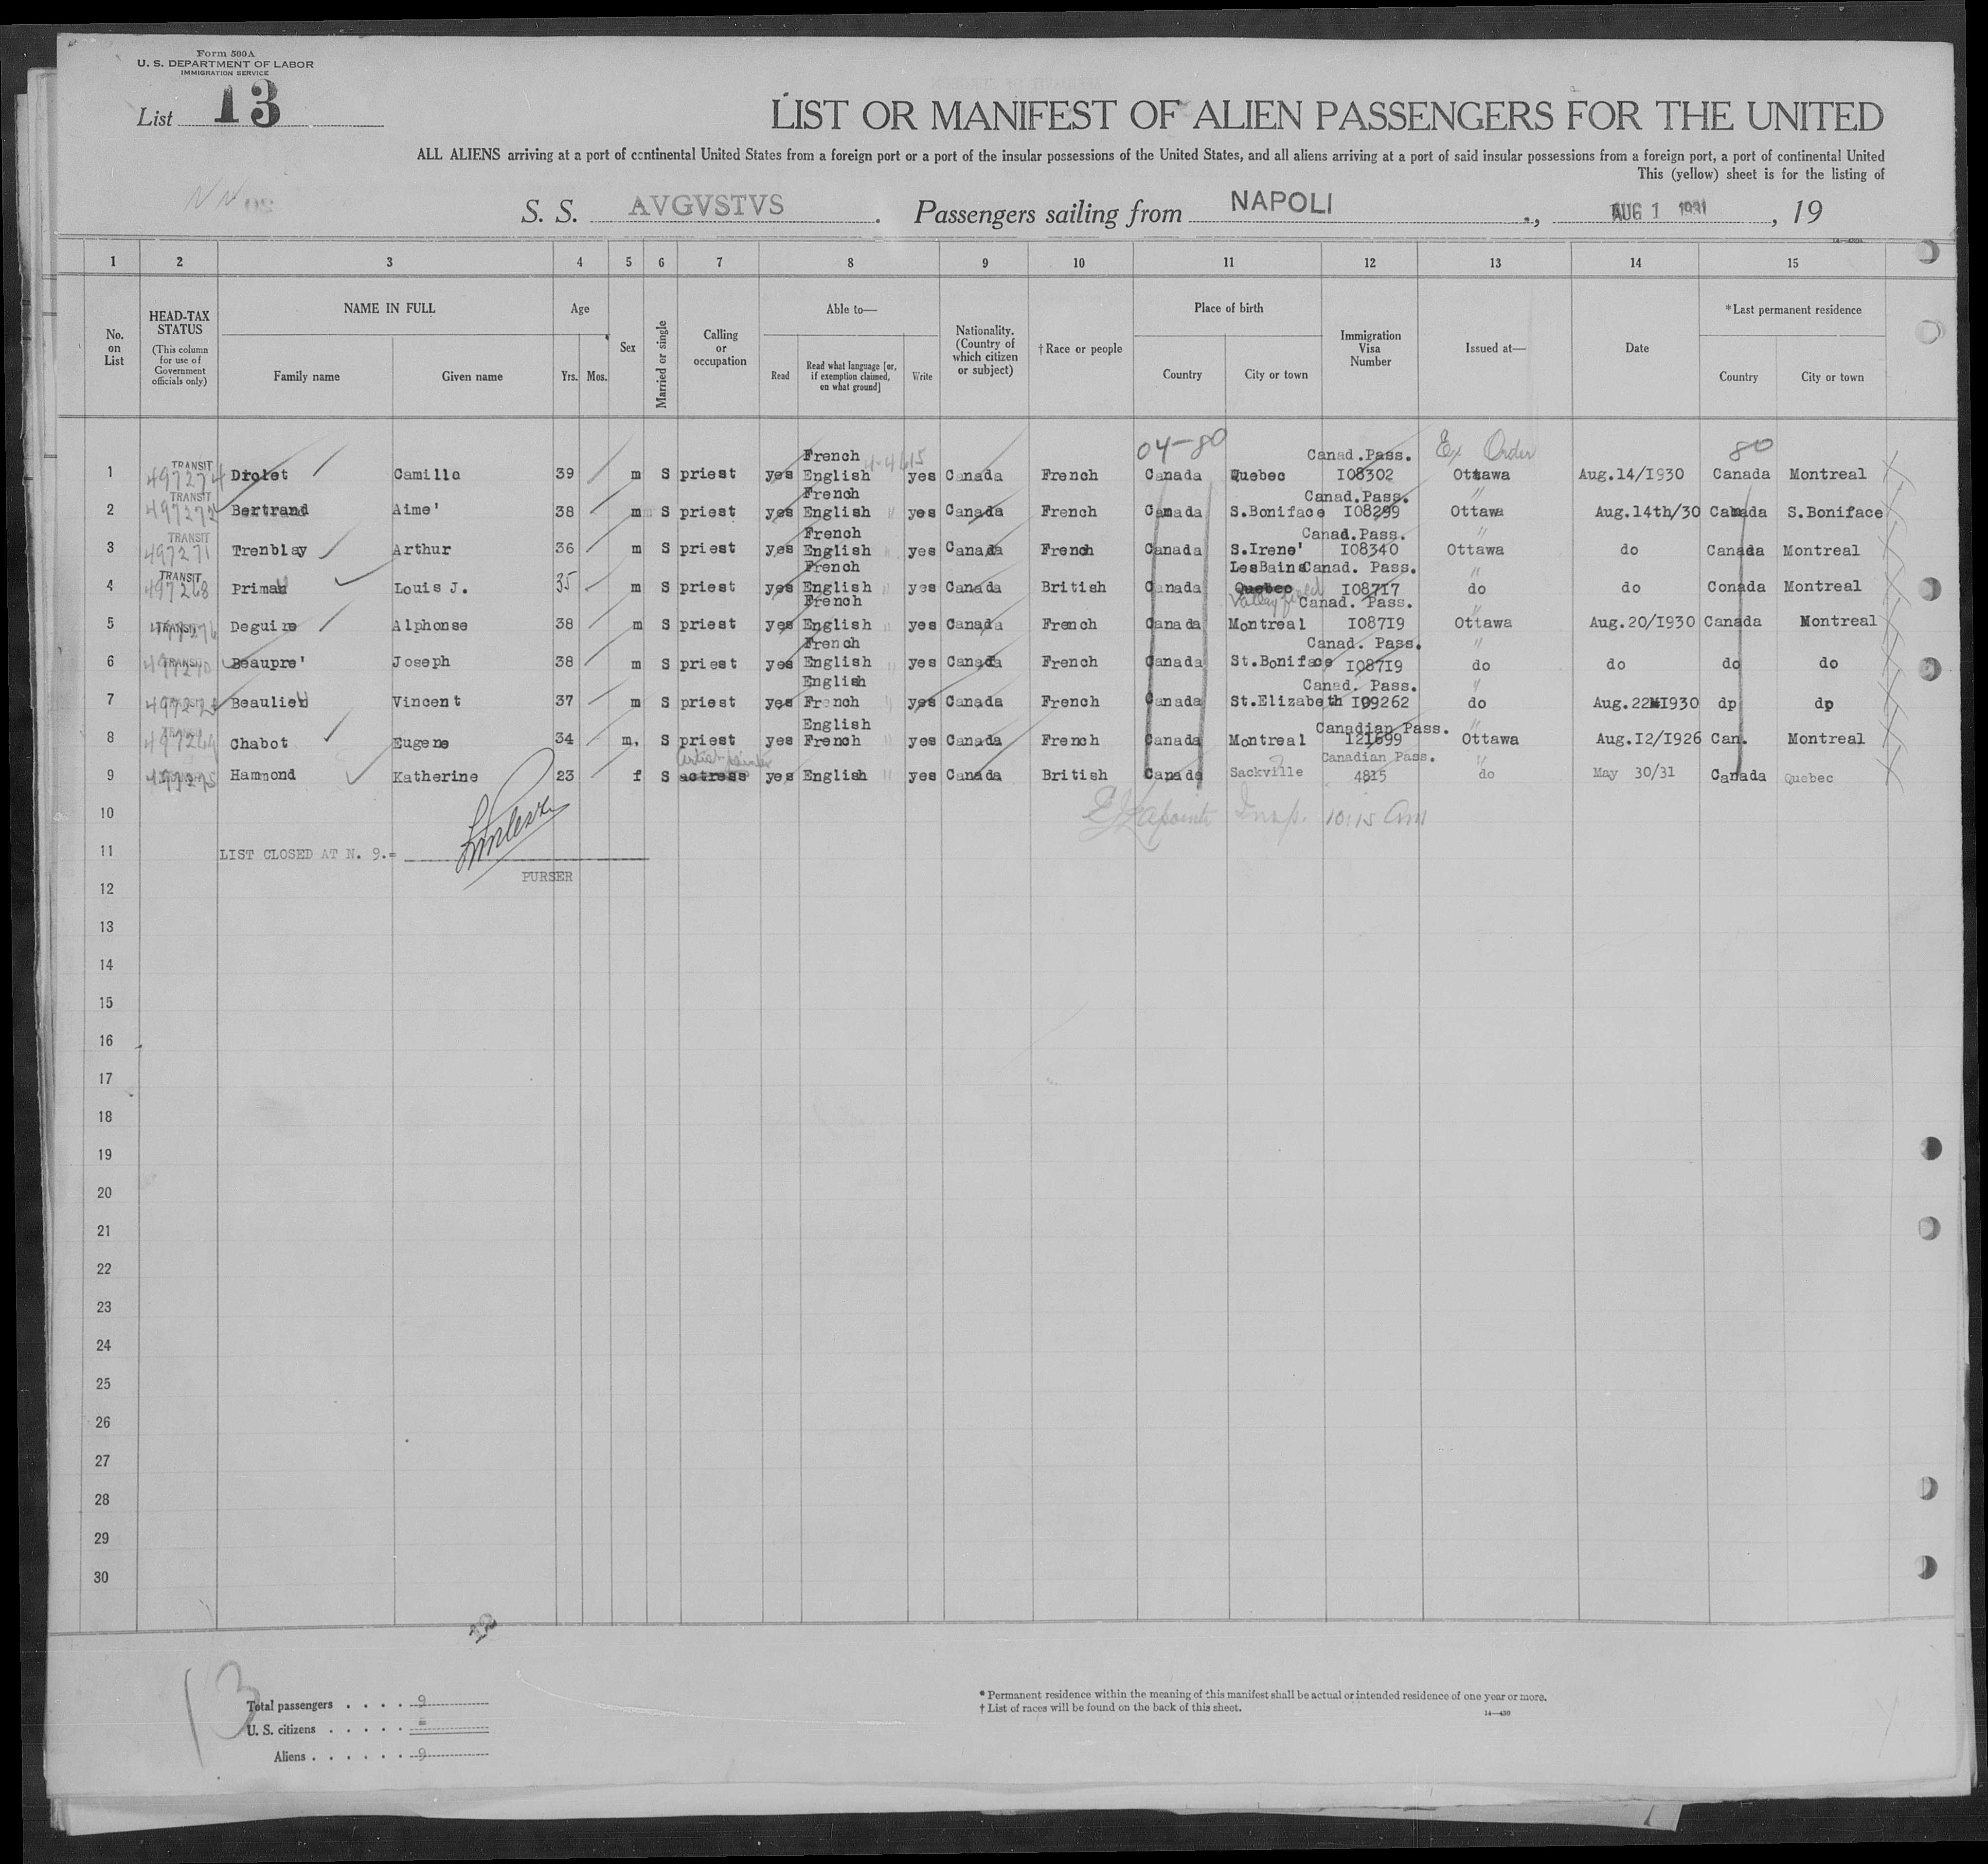 Form 500A
U. S. DEPARTMENT OF LABOR
IMMIGRATION SERVICE
List 13
LIST OR MANIFEST OF ALIEN PASSENGERS FOR THE UNITED
ALL ALIENS arriving at a port of continental United States from a foreign port or a port of the insular possessions of the United States, and all aliens arriving at a port of said insular possessions from a foreign port, a port of continental United
This (yellow) sheet is for the listing of
S. S. AVGVSTVS. Passengers sailing from NAPOLI ., AUG 1 1931, 19
1 2 3 4 5 6 7 8 9 10 11 12 13 14 15
No. on List
HEAD-TAX STATUS (This column for use of Government officials only)
NAME IN FULL Family name Given name
Age Yrs. Mos.
Sex
Married or single
Calling or occupation
Able to— Read Read what language [or, if exemption claimed, on what ground] Write
Nationality. (Country of which citizen or subject)
†Race or people
Place of birth Country City or town
Immigration Visa Number
Issued at—
Date
*Last permanent residence Country City or town
04-80 Ex Order 80
French Canad.Pass.
1 TRANSIT 497274 Drolet Camille 39 m S priest yes English yes Canada French Canada Quebec I08302 Ottawa Aug.14/I930 Canada Montreal
French Canad.Pass. "
2 TRANSIT 497272 Bertrand Aime' 38 m S priest yes English " yes Canada French Canada S.Boniface I08299 Ottawa Aug.14th/30 Canada S.Boniface
French Canad.Pass. "
3 TRANSIT 497271 Trenblay Arthur 36 m S priest yes English " yes Canada French Canada S.Irene' I08340 Ottawa do Canada Montreal
French LesBains Canad. Pass. "
4 TRANSIT 497268 Primeau Louis J. 35 m S priest yes English " yes Canada British Canada Quebec I08717 do do Conada Montreal
French Valleyfield Canad. Pass.
5 TRANSIT Deguire Alphonse 38 m S priest yes English " yes Canada French Canada Montreal I08719 Ottawa Aug.20/I930 Canada Montreal
French Canad. Pass. "
6 TRANSIT Beaupre' Joseph 38 m S priest yes English " yes Canada French Canada St.Boniface I08719 do do do do
English Canad. Pass. "
7 Beaulieu Vincent 37 m S priest yes French " yes Canada French Canada St.Elizabeth I09262 do Aug.22 I930 dp dp
English Canadian Pass. "
8 497269 Chabot Eugene 34 m. S priest yes French " yes Canada French Canada Montreal 121699 Ottawa Aug.I2/I926 Can. Montreal
artist-painter Canadian Pass. "
9 497275 Hammond Katherine 23 f S actress yes English " yes Canada British Canada Sackville 4815 do May 30/31 Canada Quebec
10 Lapointe Insp. 10:15 am
11 LIST CLOSED AT N. 9.=
PURSER
12
13
14
15
16
17
18
19
20
21
22
23
24
25
26
27
28
29
30
13
Total passengers . . . . 9
U. S. citizens . . . . . =
Aliens . . . . . . 9
* Permanent residence within the meaning of this manifest shall be actual or intended residence of one year or more.
† List of races will be found on the back of this sheet.